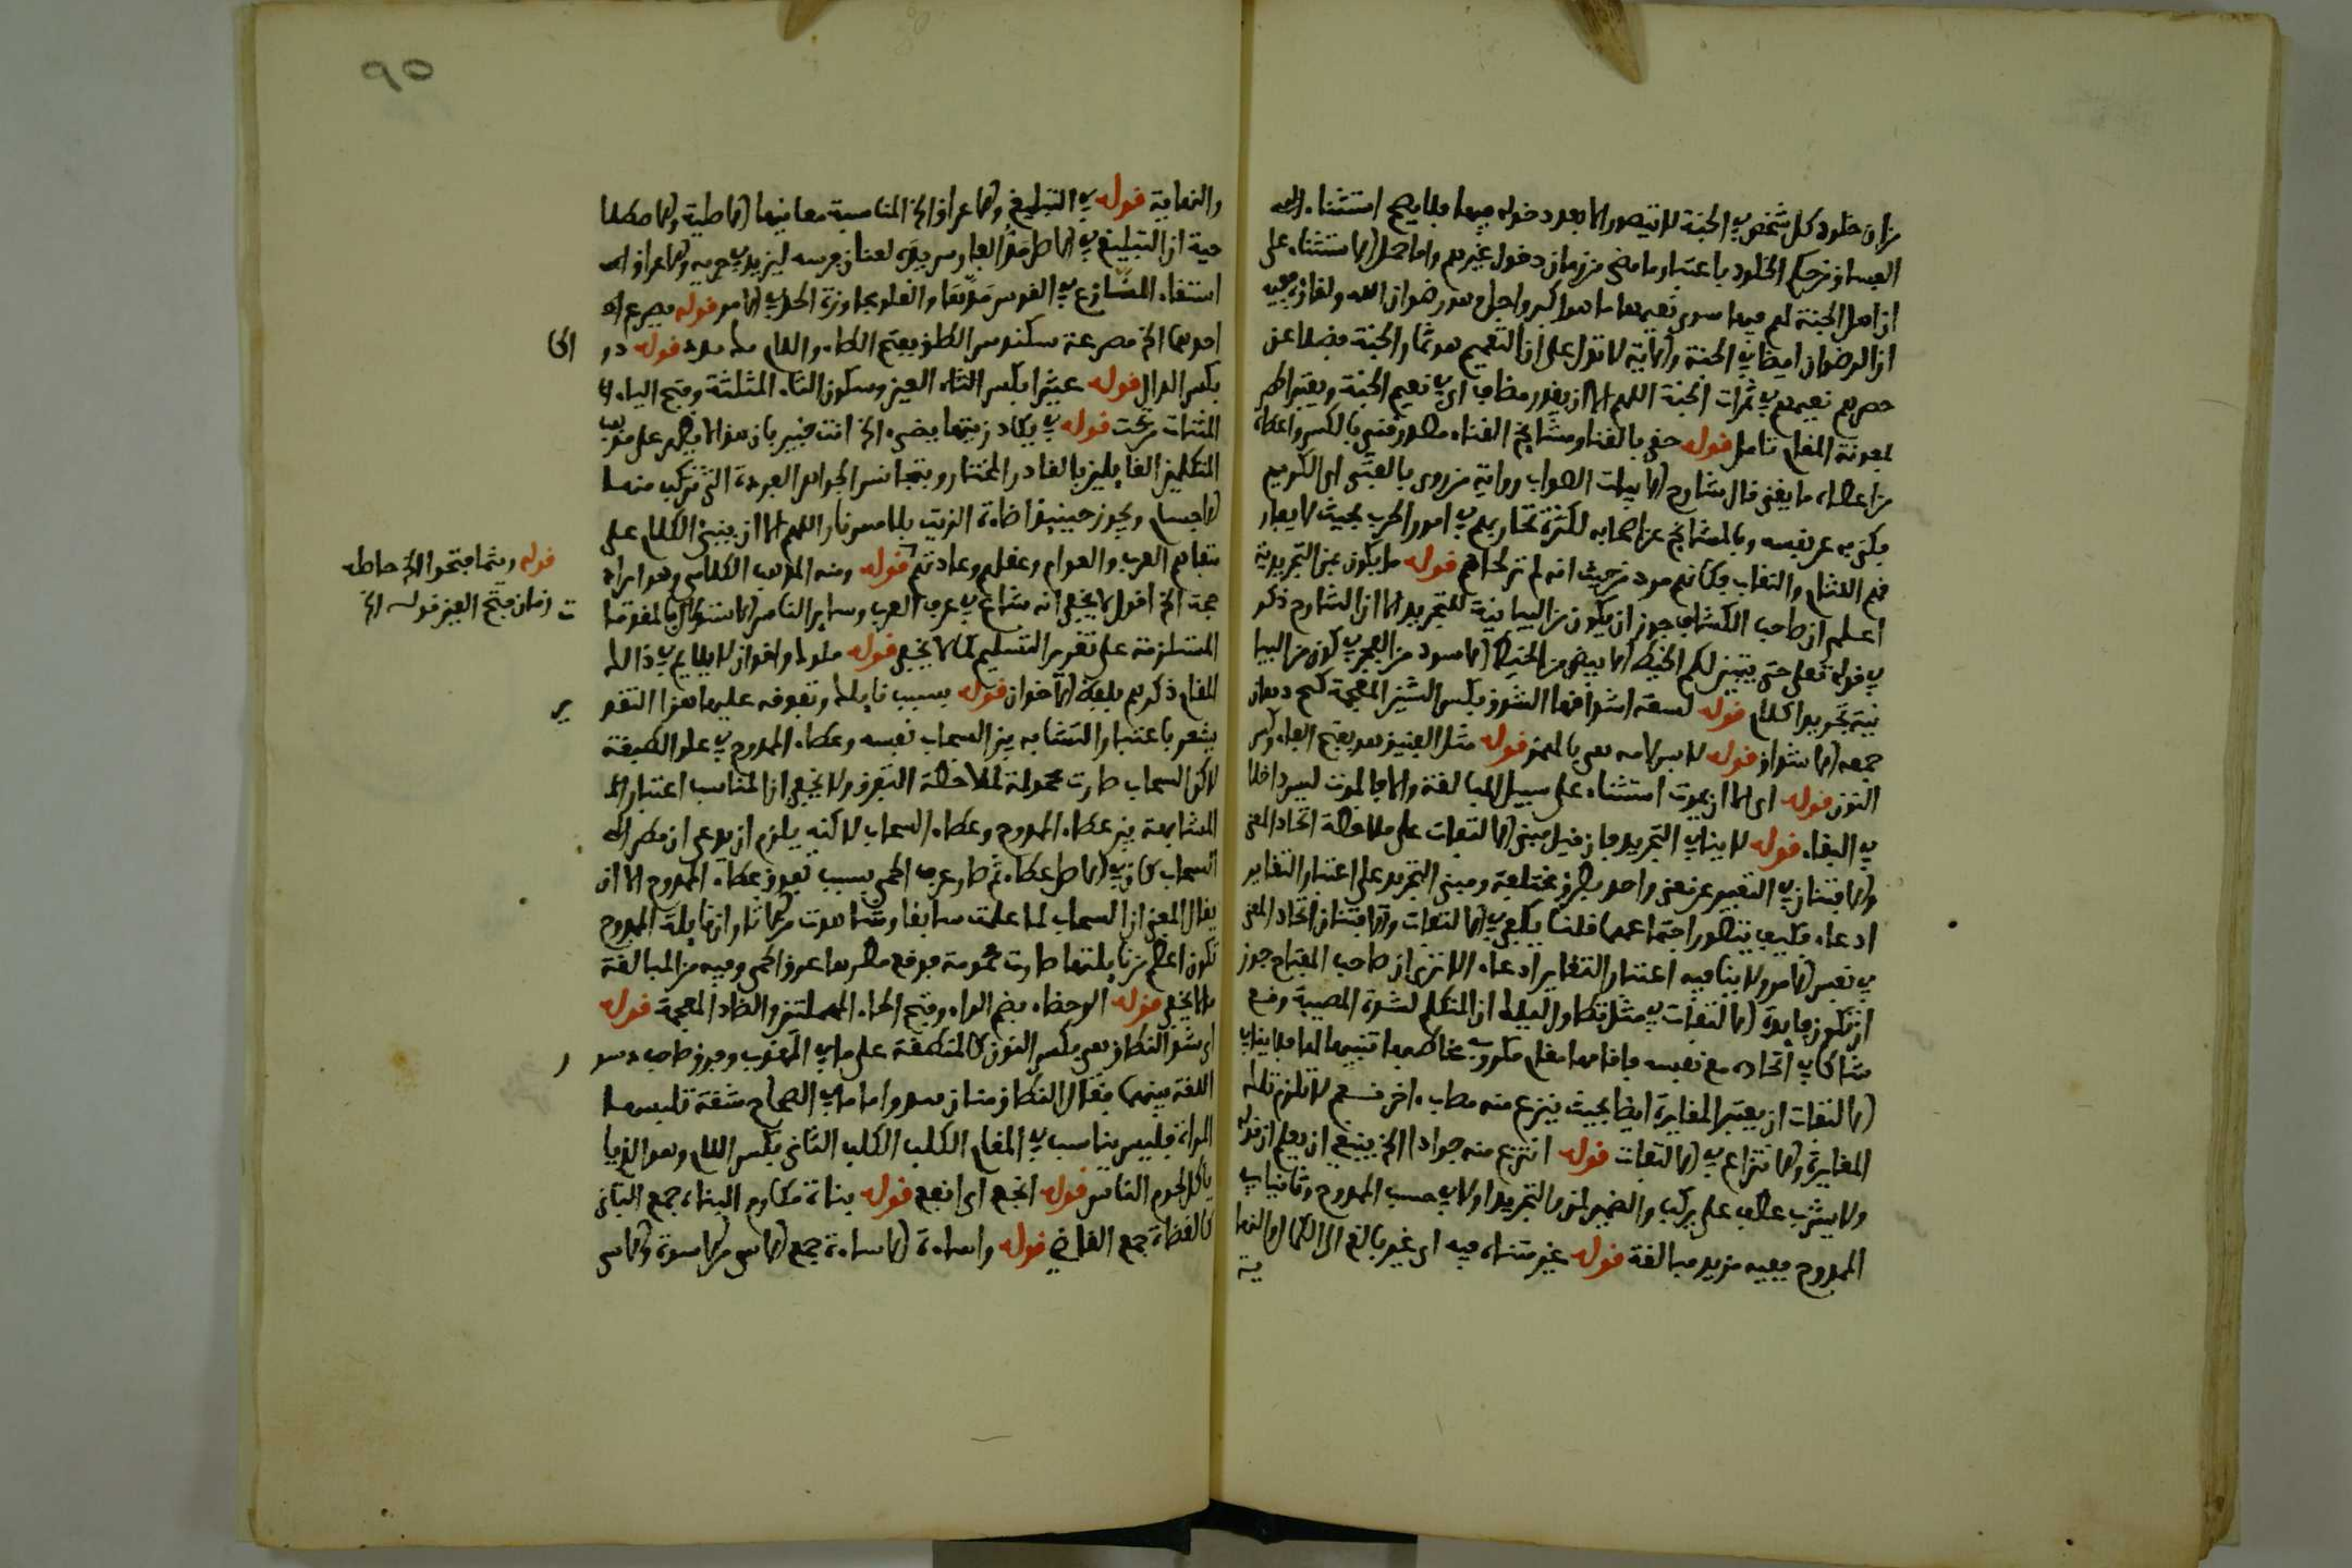 من ان خلود كل شخص في الجنة لا يتصور الا بعد دخوله فيها فلا يصح استثناء
الفساق من حكم الخلود باعتبار ما مضى من زمان دخول غيرهم واما حمل الاستثناء على
ان اهل الجنة لهم فيها سوى نعيمها ما هو اكبر واجل وهو رضوان الله ولقاؤه ففيه
ان الرضوان ايضا في الجنة والاية لا تدل على ان النعيم هو ثمار الجنة فضلا عن
حصر نعيمهم في ثمرات الجنة اللهم الا ان يقدر مضاف اي في نعيم الجنة ويعتبر
بمعونة المقام تامل قوله حقي بالقنا ومشايخ القناء مصدر قني بالكسر واعطاء
من اعطاه ما يغني قال شارح الابيات الصواب رواية من روى بالفتى اي الكريم
يكني به عن نفسه وبالمشايخ عن اصحابه لكثرة تجاربهم في امور الحرب بحيث لا
فهم اللثام والنقاب فكانهم مرد من حيث انه لم تر لحاهم قوله ما يكون بمن التجريدية
اعلم ان صاحب الكشاف جوز ان يكون من البيانية للتجريد الا ان الشارح ذكر
في قوله تعلى حتى يتبين لكم الخيط الابيض من الخيط الاسود من الفجر في كون من البيا
نية تجريدا كلام قوله لسعة اشداقها الشدق بكسر الشين المعجمة
جمعه الاشداق قوله لابس لامه هي بالهمز قوله مثل الفنيق هو بفتح الفاء وكسر
النون قوله اي الا ان يموت استثناء على سبيل المبالغة والا فالموت ليس داخلا
في البقاء قوله لا ينافي التجريد فان قيل مبنى الالتفات على ملاحظة اتحاد المعنى
والافتنان في التعبير عن معنى واحد بطرق مختلفة ومبنى التجريد على اعتبار التغاير
ادعاء فكيف يتصور اجتماعهما قلنا يكفي في الالتفات والافتنان اتحاد المعنى
في نفس الامر ولا ينافيه اعتبار التغاير ادعاء الا ترى ان صاحب المفتاح جوز
ان تكون فايدة الالتفات في مثل تطاول ليلك ان المتكلم لشدة المصيبة وقع
شاكا في اتحاده مع نفسه فاقامها مقام مكروب يخاطبها تنبيها لها فلا ينافي
الالتفات ان يعتبر المغايرة ايضا بحيث ينزع منه مصاب اخر نعم لا تلزم تلك
المغايرة والانتزاع في الالتفات قوله انتزع منه جوادا الخ ينبغي ان يعلم ان قوله
ولا يشرب عطف على يركب والضمير لمن فالتجريد اولا في حسب الممدوح وثانيا في
الممدوح ففيه مزيد مبالغة قوله غير متناه فيه اي غير بالغ الى الكمال والنها
ية
٩٥
والنهاية قوله في التبليغ والاغراق الخ المناسبة معانيها الاصلية والاصطلا
حية ان التبليغ في الاصل مد الفارس يده لعنان فرسه ليزيد في جريه والاغراق
استيفاء النازع في القوس مدها والغلو مجاوزة الحد في الامر قوله يصرع
احدهما الخ يصرعه بفتح الطاء واللام قوله در
الخ
بكسر الدال قوله عثيرا بكسر العين وسكون الثاء المثلثة وفتح الياء
المثناة تحت قوله في يكاد زيتها يضيء الخ انت خبير بان هذا لا يظهر على مذهب
المتكلمين القايلين بالقادر المختار وبتجانس الجواهر الفردة التي تتركب منها
الاجسام ويجوز حينيذ اضاءة الزيت بلا مس نار اللهم الا ان يبنى الكلام على
تفاهم العرب والعوام وعقلهم وعادتهم قوله ومنه المذهب الكلامي وهو ايراد
حجة الخ اقول لا يخفى انه شاع في عرف العرب وساير الناس الاستدلال بالمقدمات
المستلزمة على تقدير التسليم كما لا يخفى قوله ملوك واخوان لا يلايم في ذلك
المقام ذكرهم بلفظ الاخوان قوله بسبب نايله وتفوقه عليها هذا التقد
ير
يشعر باعتبار التشابه بين السحاب نفسه وعطاء الممدوح في علو الطبقة
لاكن السحاب صارت محمومة لملاحظة التفوق ولا يخفى ان المناسب اعتبار
المشابهة بين عطاء الممدوح وعطاء السحاب لاكنه يلزم ان يدعى ان مطر
السحاب كان في الاصل عطاء ثم صار عرق الحمى بسبب تفوق عطاء الممدوح الا ان
يقال المعنى ان السحاب لما علمت سابقا وشاهدت من اثار ان نايلة الممدوح
تكون اعظم من نايلتها صارت محمومة فوقع مطرها عرق الحمى وفيه من المبالغة
ما لا يخفى قوله الرحضاء بضم الراء وفتح الحاء المهملتين والضاد المعجمة قوله
اي شد النطاق هي بكسر النون كالمنطقة على ما في المهذب وفرق صاحب دستو
ر
اللغة بينهما فقال النطاق واما ما في الصحاح شقة تلبسها
المراة فليس يناسب في المقام الكلب الكلب الثاني بكسر اللام وهو الذي
ياكل لحوم الناس قوله انجع اي انفع قوله بناة مكارم البناة جمع الباني
كالقضاة جمع القاضي قوله واساءة الاساءة جمع الاسي من الاسوة والاسى
قوله وبما فتحوا الخ حاصله
ت زمان فتح العين قوله الخ